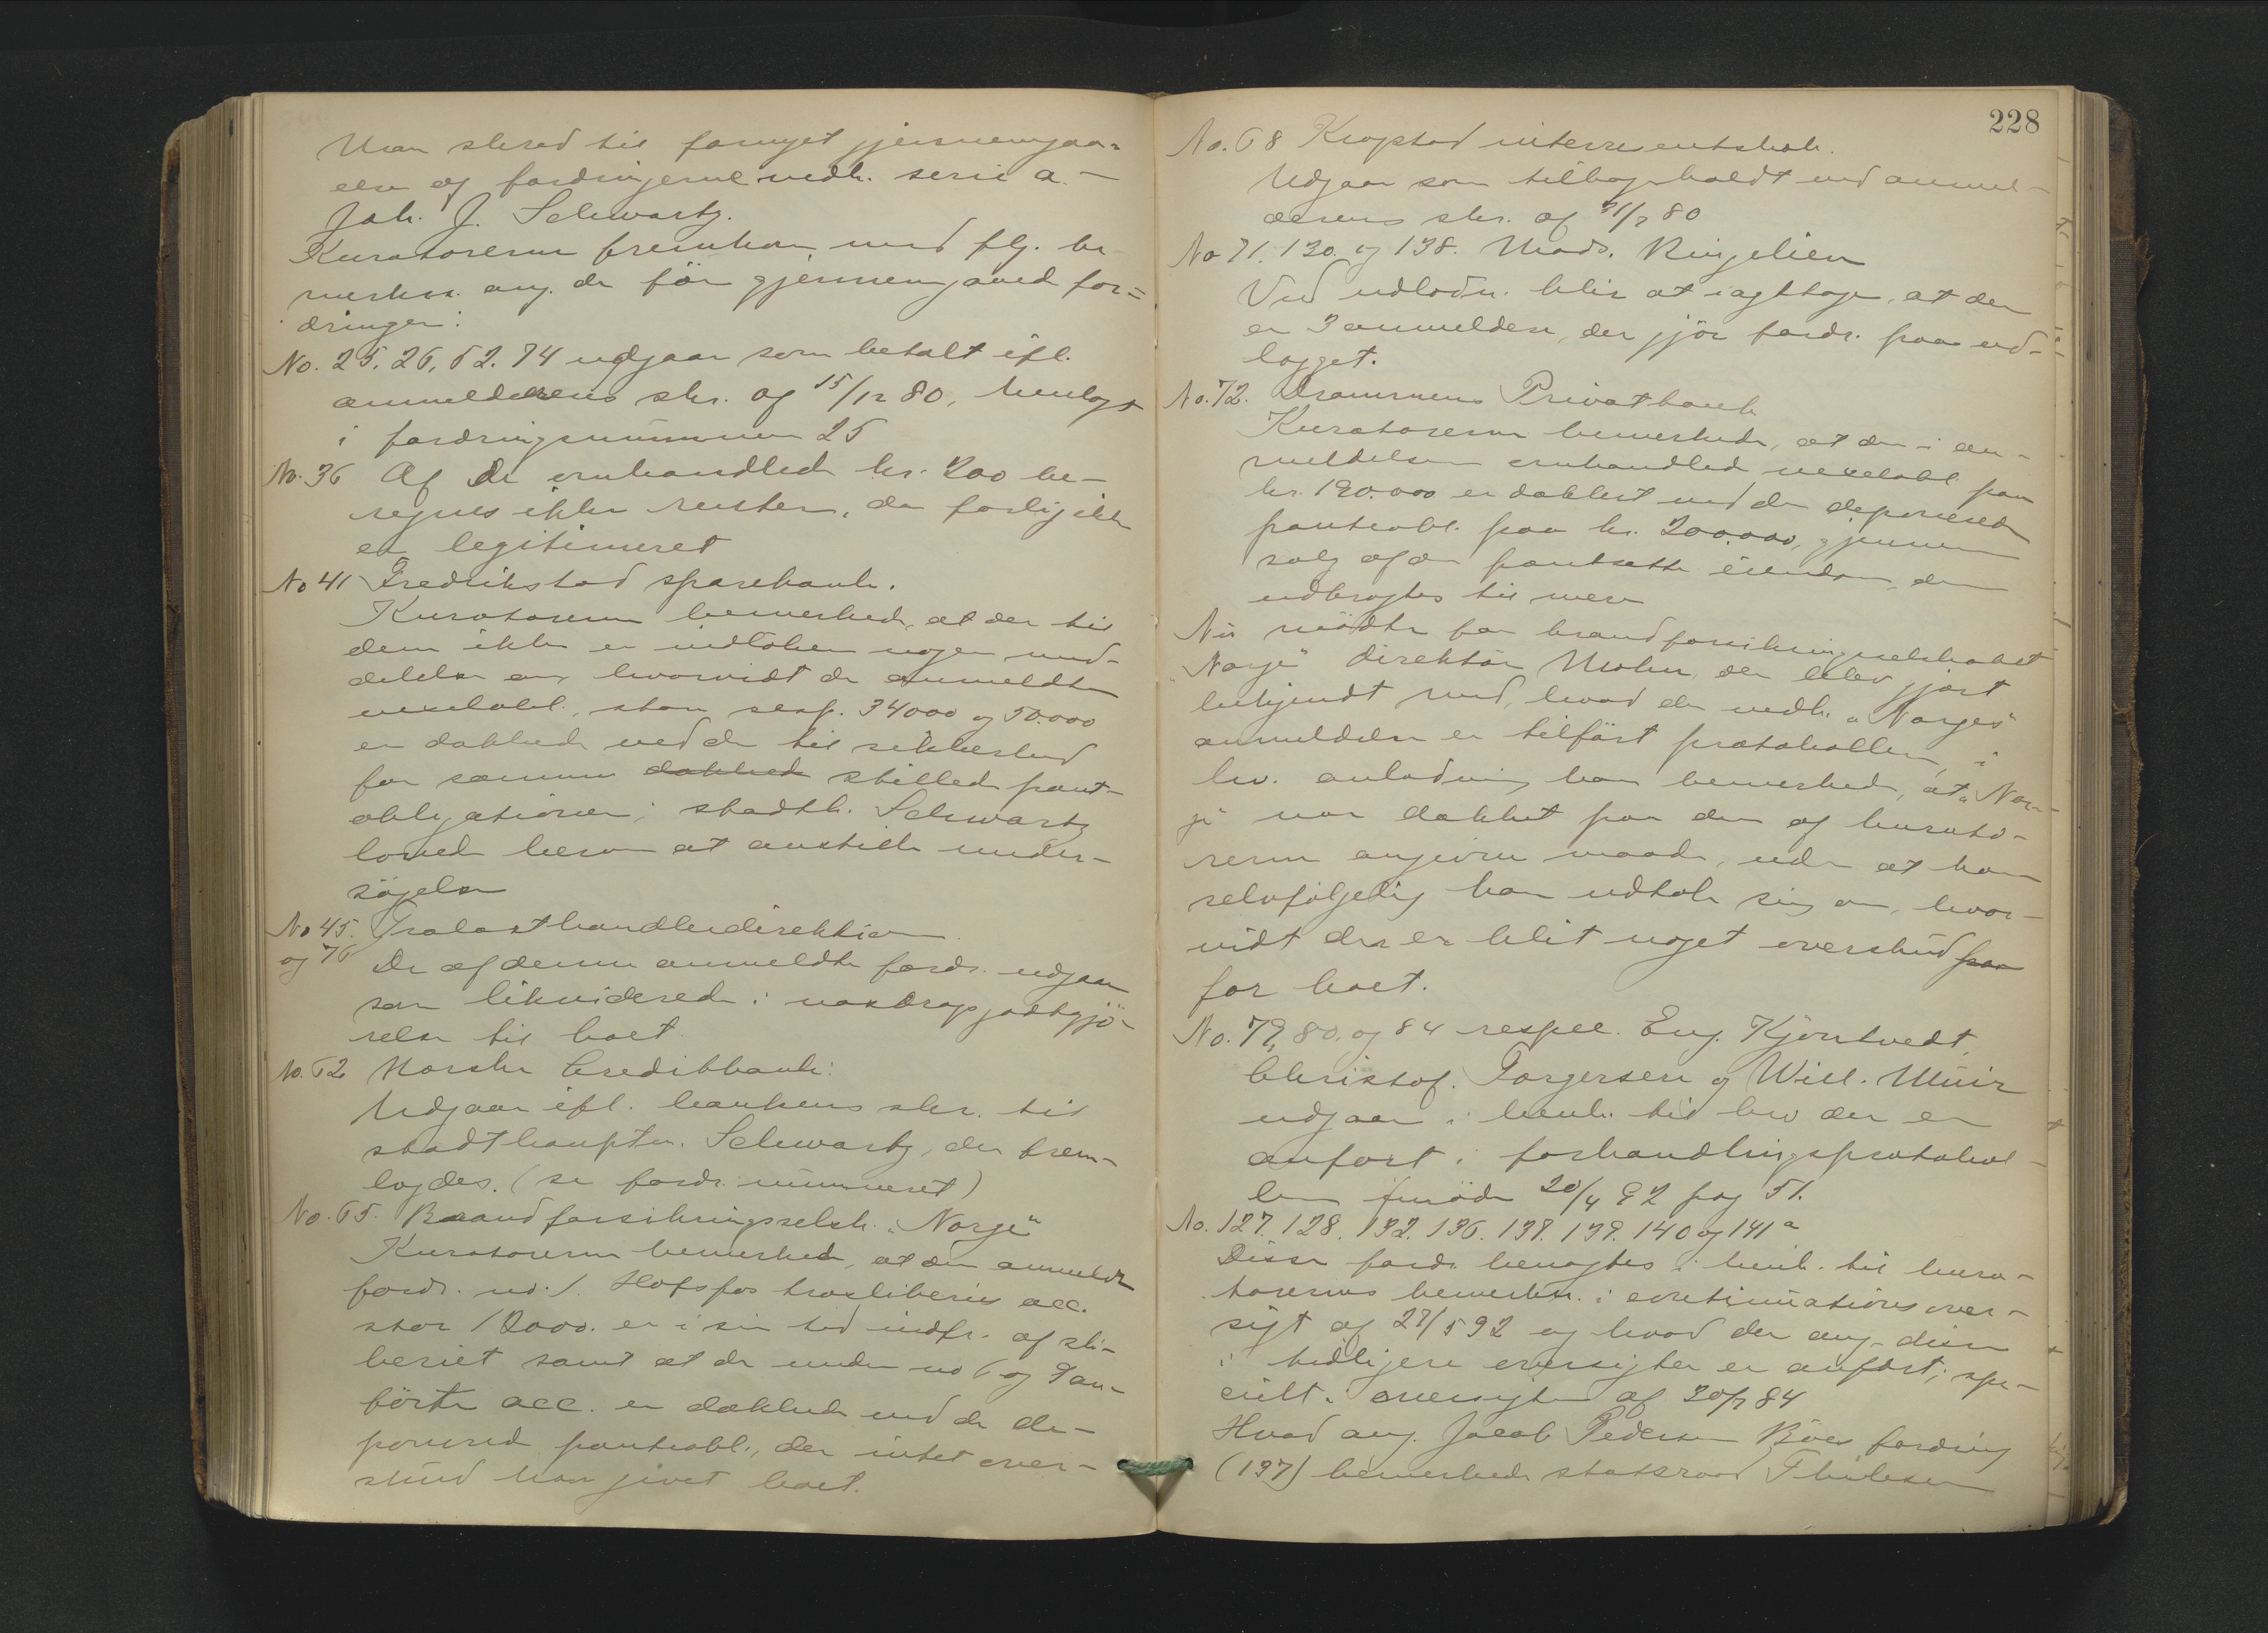 Man skred til fornyet gjennemgaa-
else af fordringerne vedk. serie a. -
Joh. J. Schwartz.
Kuratorerne fremkom med flg. be-
merkn. ang. de før gjennemgaaede for-
dringer:
No. 25, 26, 52. 74 udgaar som betalt ifl.
anmelderens skr. af 15/12 80, henlagt
i fordringsnummer 25
No. 36 Af de omhandlede kr. 200 be-
regnes ikke renter, da forlig ikke
er legitimeret
No 41 Fredrikstad sparebank.
Kuratorerne bemerkede, at der til
dem ikke er indløben nogen med-
delelse om, hvorvidt de anmeldte
vexelobl., stor resp. 34000 og 50.000
er dækkede ved de til sikkerhed
for samme dækkede stillede pant-
obligationer; stadth. Schwartz
lovede herom at anstille under-
søgelse
No 45. Trælasthandlerdirektion
og 76 De af denne anmeldte fordr. udgaar
som likviderede i vasdragsgodtgjø-
relse til boet.
No. 62 Norske Creditbank:
Udgaar ifl. bankens skr. til
stadthauptm. Schwartz, der frem-
lagdes. (se fordr. nummeret)
No. 65. Brandforsikringsselsk. "Norge"
Kuratorerne bemerkede, at den anmeldte
fordr. no: 1. Hofsfos træsliberis acc.
stor 12000. er i sin tid indfr. af sli-
beriet samt at de under no 6 og 7 an-
førte acc. er dækkede ved de de-
ponerede panteobl., der intet over-
skud har givet boet.
228
No. 68 Krogstad interessentskab.
Udgaar som tilbageholdt ved anmel-
derens skr. af 31/7 80
No 71. 130. og 138. Mads. Ringelien
Ved udlodn. blir at iagttage, at der
er 3 anmeldere, der gjør fordr. paa ud-
lægget.
No. 72. Drammens Privatbank
Kuratorerne bemerkede, at den i an-
meldelsen omhandlede vexelobl. paa
kr. 120.000 er dækket ved de deponerede
panteobl. paa kr. 200.000, gjennem
salg af den pantsatte eiendom, der
udbragtes til mere
Nu mødte for brandforsikringsselskabet
"Norge" direktør Mohn, der blev gjort
bekjendt med, hvad der vedk. "Norges"
anmeldelse er tilført protokollen, i
hv. anledning han bemerkede, at "Nor-
ge" var dækket paa den af kurato-
rerne angivne maade, uden at han
selvfølgelig kan udtale sig om, hvor-
vidt der er blit noget overskud paa
for boet.
No. 79, 80. og 84 respec. Eng. Kjøntvedt,
Christof. Torgersen og Will. Muir
udgaar i henh. til hv der er
anført i forhandlingsprotokol-
len f møde 20/4 92 pag 51.
No. 127. 128. 132. 136. 138. 139. 140 og 141 a
Disse fordr. benægtes i henh. til kura-
torernes bemerkn. i continuationsover-
sigt af 27/5 92 og hvad der ang. disse
i tidligere oversigter er anført; spe-
cielt i oversigten af 30/7 84
Hvad ang. Jacob Pedersen Bøes fordring
(137) bemerkede statsraad Thilesen